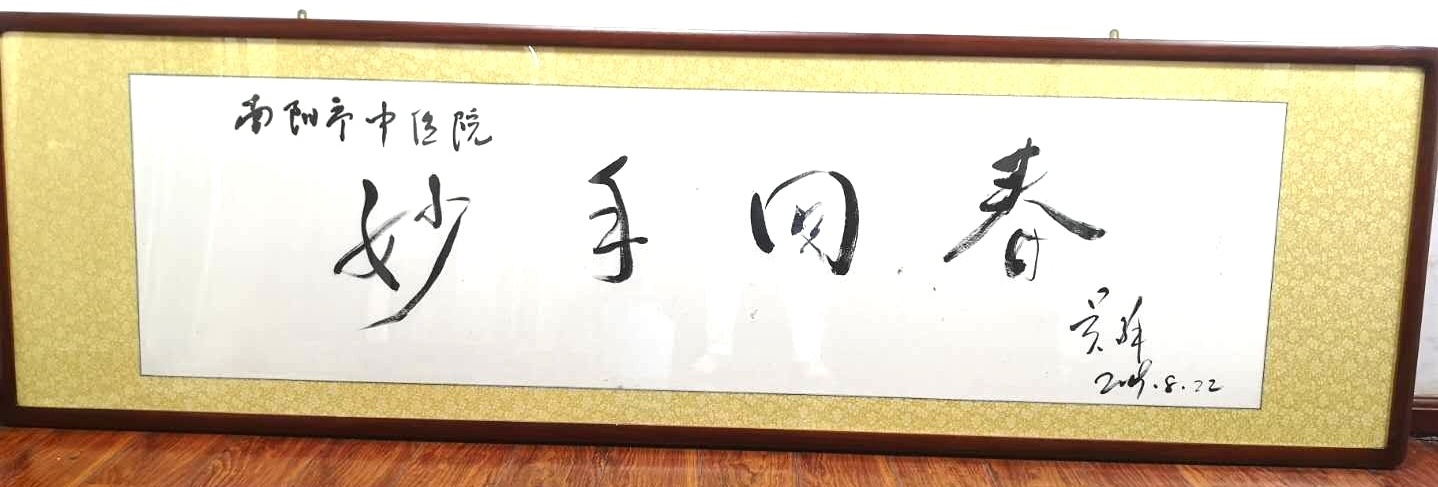 南阳市中医院
妙手回春
吴
2019.8.22